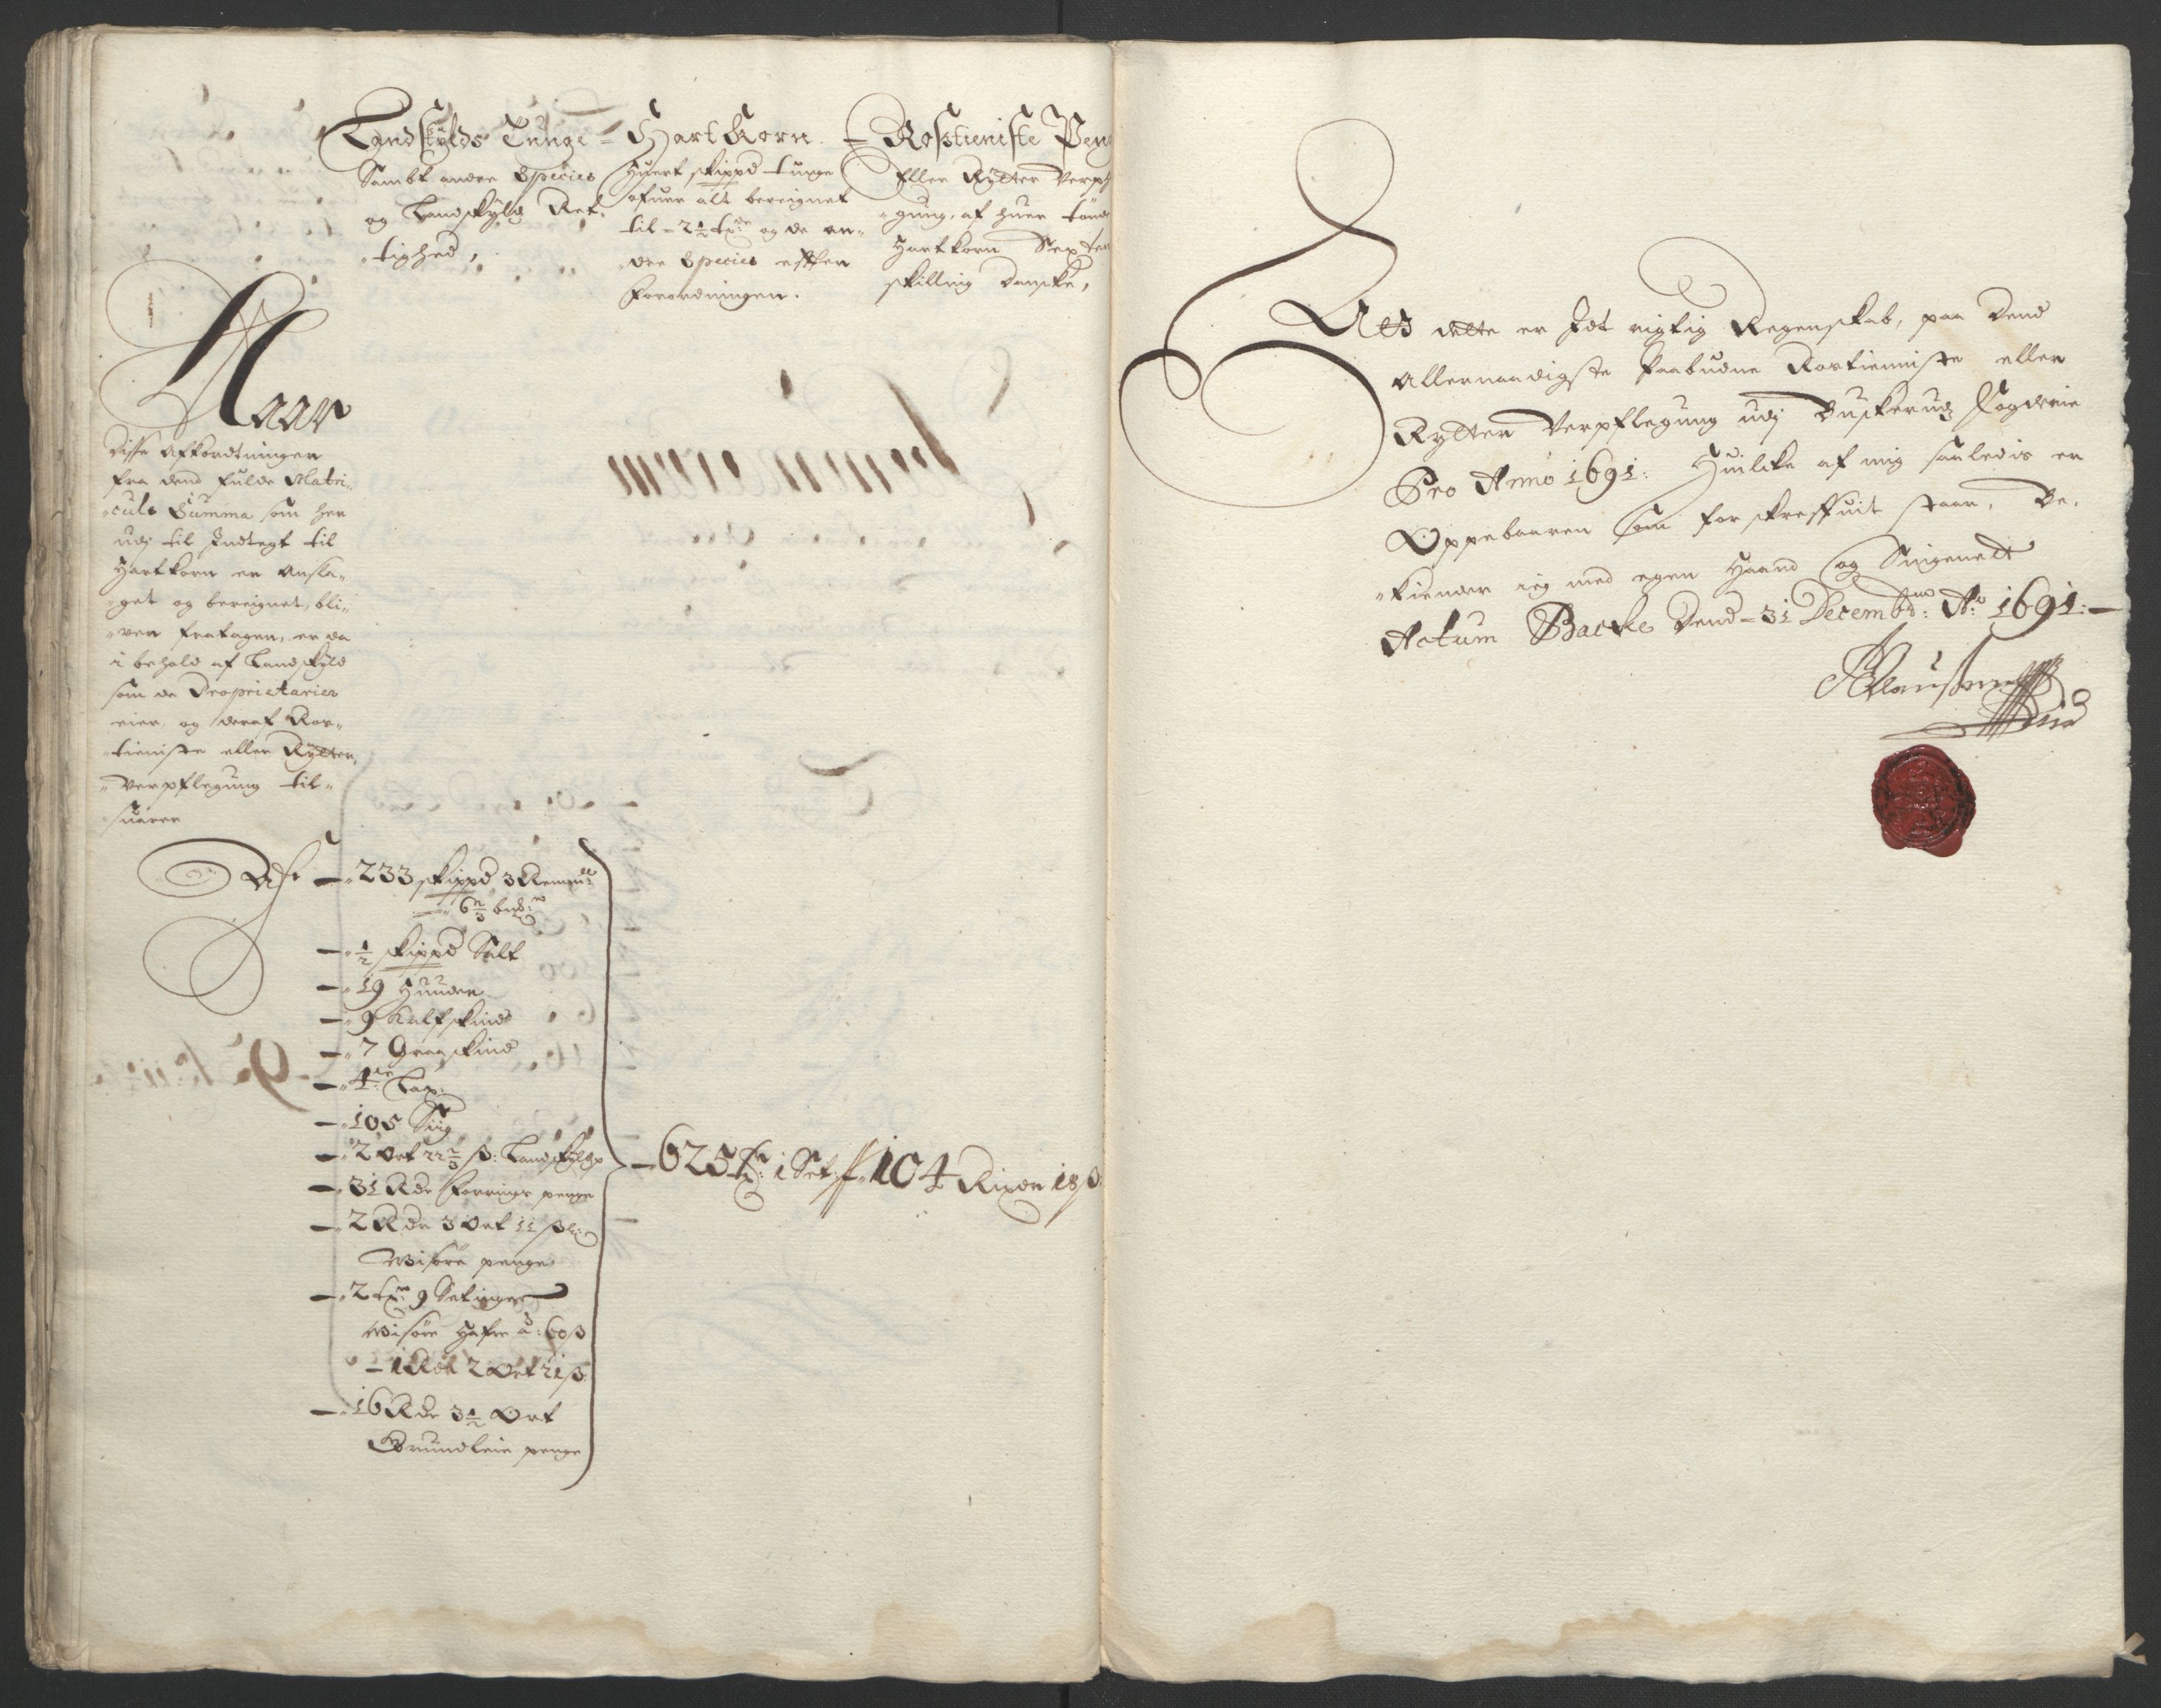 Landskylds Tunge
Sambt andre Species
og Landskyld Ret-
tighed,
Hart Korn
Huert skippd tunge
ofuer alt bereignet
til 2½ tr: og de an-
dre Species efter
Forordningen.
Rostieniste Peng
Eller Rÿtter Verpfle
gung, af huer tönde
Hartkorn Sexten
skilling Danske,
Naar
Disse Afkordtninger
fra dend fulde Matri-
culs Summa som her
udj til Indtegt til
Hartkorn er Ansla-
get og bereignet, bli-
ver fratagen, er da
i behold af Landskyld
som de Proprietarier
eier, og deraf Ros-
tieniste eller Rÿtter
Verpflegung til-
suarer
233 skippd 3 Remmell
6 2/3 bd:
½ skippd Salt
19 Huuder
9 Kalfskind
7 Graaskind
4re Lax
105 Siig
2 Ort 22 2/3 ß: Landskyld
31 Rdr Forrings penge
2 Rdr 3 Ort 11 ß
Wisöre penge
2 tr: 9 Setinger
Wisöre Hafre a: 60 ß
1 Rdr 2 Ort 21 ß
16 Rdr 3½ Ort
Grundleie penge
625 tr: 1 Set: 104 Rixdr 18 ß:
At dette er Idt rigtig Regenskab, paa Dend
Allernaadigste Paabudne Rostieniste eller
Rytter Verpflegung udj Buskeruds Fogderie
Pro Anno 1691: Huilcke af mig saaledis er
Oppebaaren som forskreffuit staar, Be-
kiender ieg med egen Haand og Signett
Actum Backe Dend 31 Decembr: Ao 1691: